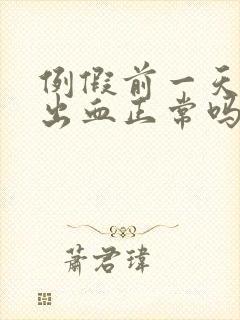 例假前一天
出血正常吗
萧君瑋